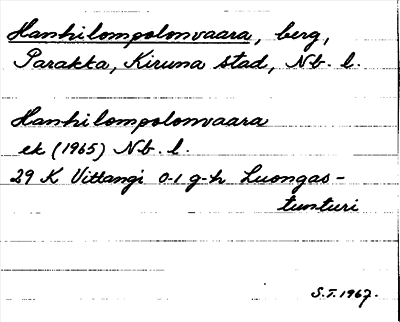 Hanhilompolonvaara, berg,
Parakka, Kiruna stad, Nb. l.
Hanhilompolonvaara
ek (1965) Nb. l.
29 K Vittangi 0-1 g-h Luongas-
tunturi
S.T. 1967.